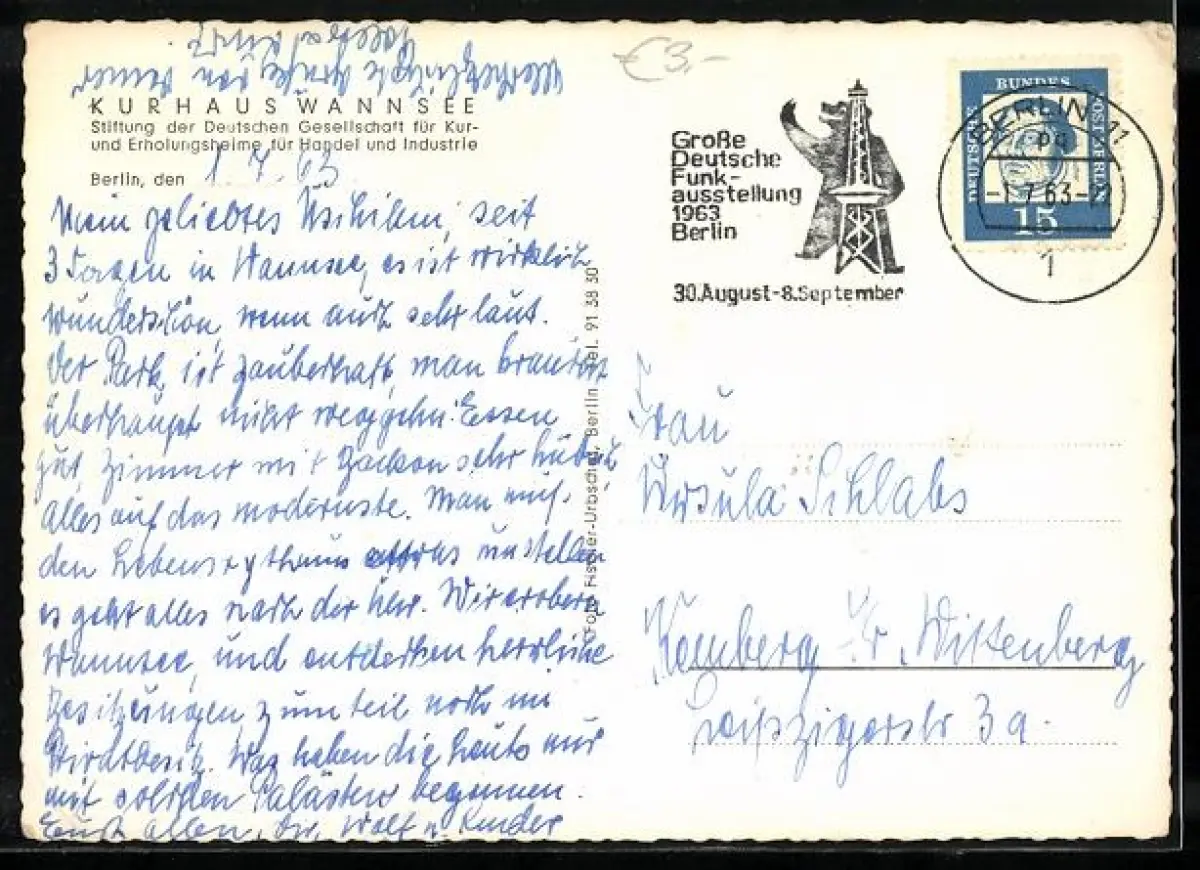 € 3,-
KURHAUS WANNSEE
Stiftung der Deutschen Gesellschaft für Kur-
und Erholungsheime für Handel und Industrie
Berlin, den 1.7.63
Mein geliebtes seit
3 Tagen in Wannsee, es ist wirklich
wunderschön, wenn auch sehr laut.
Der Park ist zauberhaft, man braucht
überhaupt nicht weggehn. Essen
gut, Zimmer mit sehr hübsch
alles auf das modernste. Man muß
den Lebensrythmus etwas umstellen
es geht alles nach der Uhr. Wir erobern
Wannsee, und entdecken herrliche
Besitzungen, zum teil noch im
Privatbesitz. Was haben die Leute nur
mit solchen Palästen begonnen.
Gruß allen, Dir, Wolf u. Kinder
allerherzlichste Grüße von Deiner
Foto Fischer-Urbschat, Berlin Tel. 91 58 50
Große
Deutsche
Funk-
ausstellung
1963
Berlin
30.August-8.September
DEUTSCHE BUNDESPOST BERLIN
15
BERLIN 11
-1.7.63-
1
Frau
Ursula Schlabs
Kemberg Kr. Wittenberg
Leipzigerstr 3a.